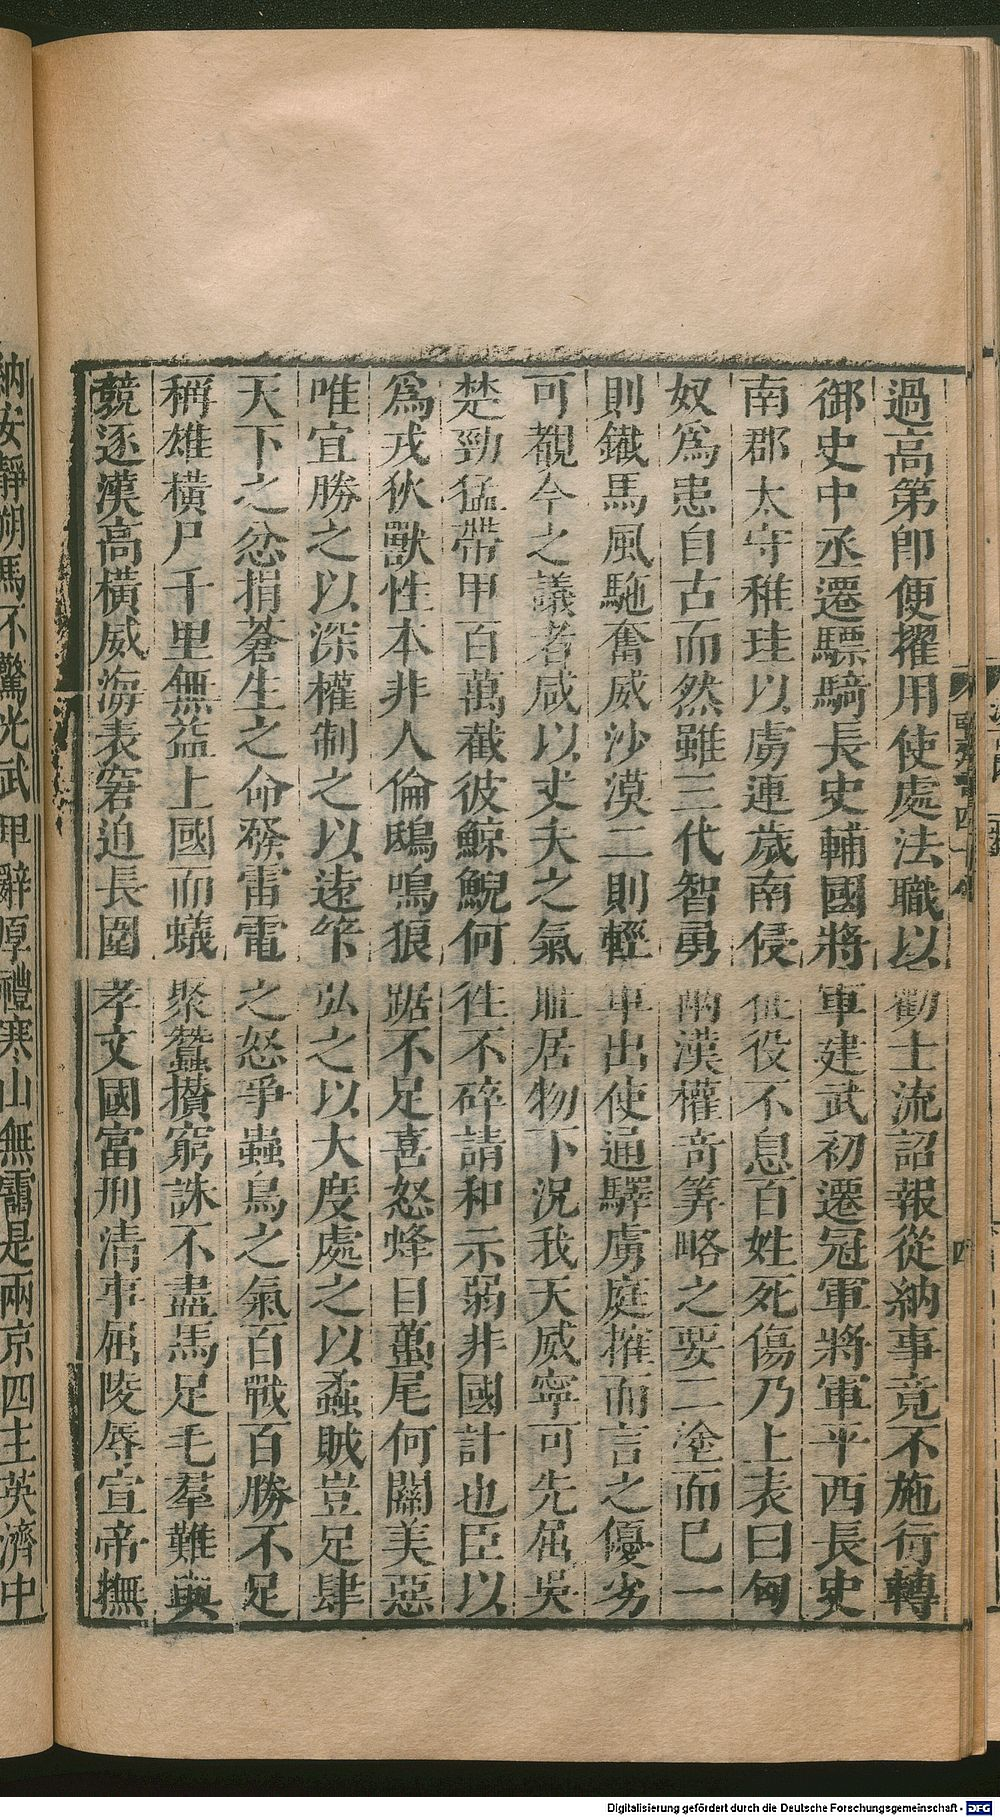 過高第卽便擢用使處法職以勸士流詔報從納事竟不施行轉
御史中丞遷驃騎長史輔國將軍建武初遷冠軍將軍平西長史
南郡太守稚珪以虜連歲南侵征役不息百姓死傷乃上表曰匈
奴爲患自古而然雖三代智勇兩漢權奇筭略之要二塗而已一
則鐵馬風馳奮威沙漠二則輕車出使通驛虜庭搉而言之優劣
可覩今之議者咸以丈夫之氣恥居物下况我天威寧可先屈吳
楚勁猛帶甲百萬截彼鯨鯢何徃不碎請和示弱非國計也臣以
爲戎狄獸性本非人倫鴟鳴狼踞不足喜怒蜂目蠆尾何關美惡
唯宜勝之以深權制之以遠筭弘之以大度處之以蟊賊豈足肆
天下之忿捐蒼生之命發雷電之怒爭蟲鳥之氣百戰百勝不足
稱雄橫尸千里無益上國而蟻聚蠶攢窮誅不盡馬足毛羣難與
競逐漢高橫威海表窘迫長圍孝文國富刑清事屈陵辱宣帝撫
納安靜朔馬不驚光武卑辭厚禮寒山無靄是兩京四主英濟中
四
Digitalisierung gefördert durch die Deutsche Forschungsgemeinschaft - DFG